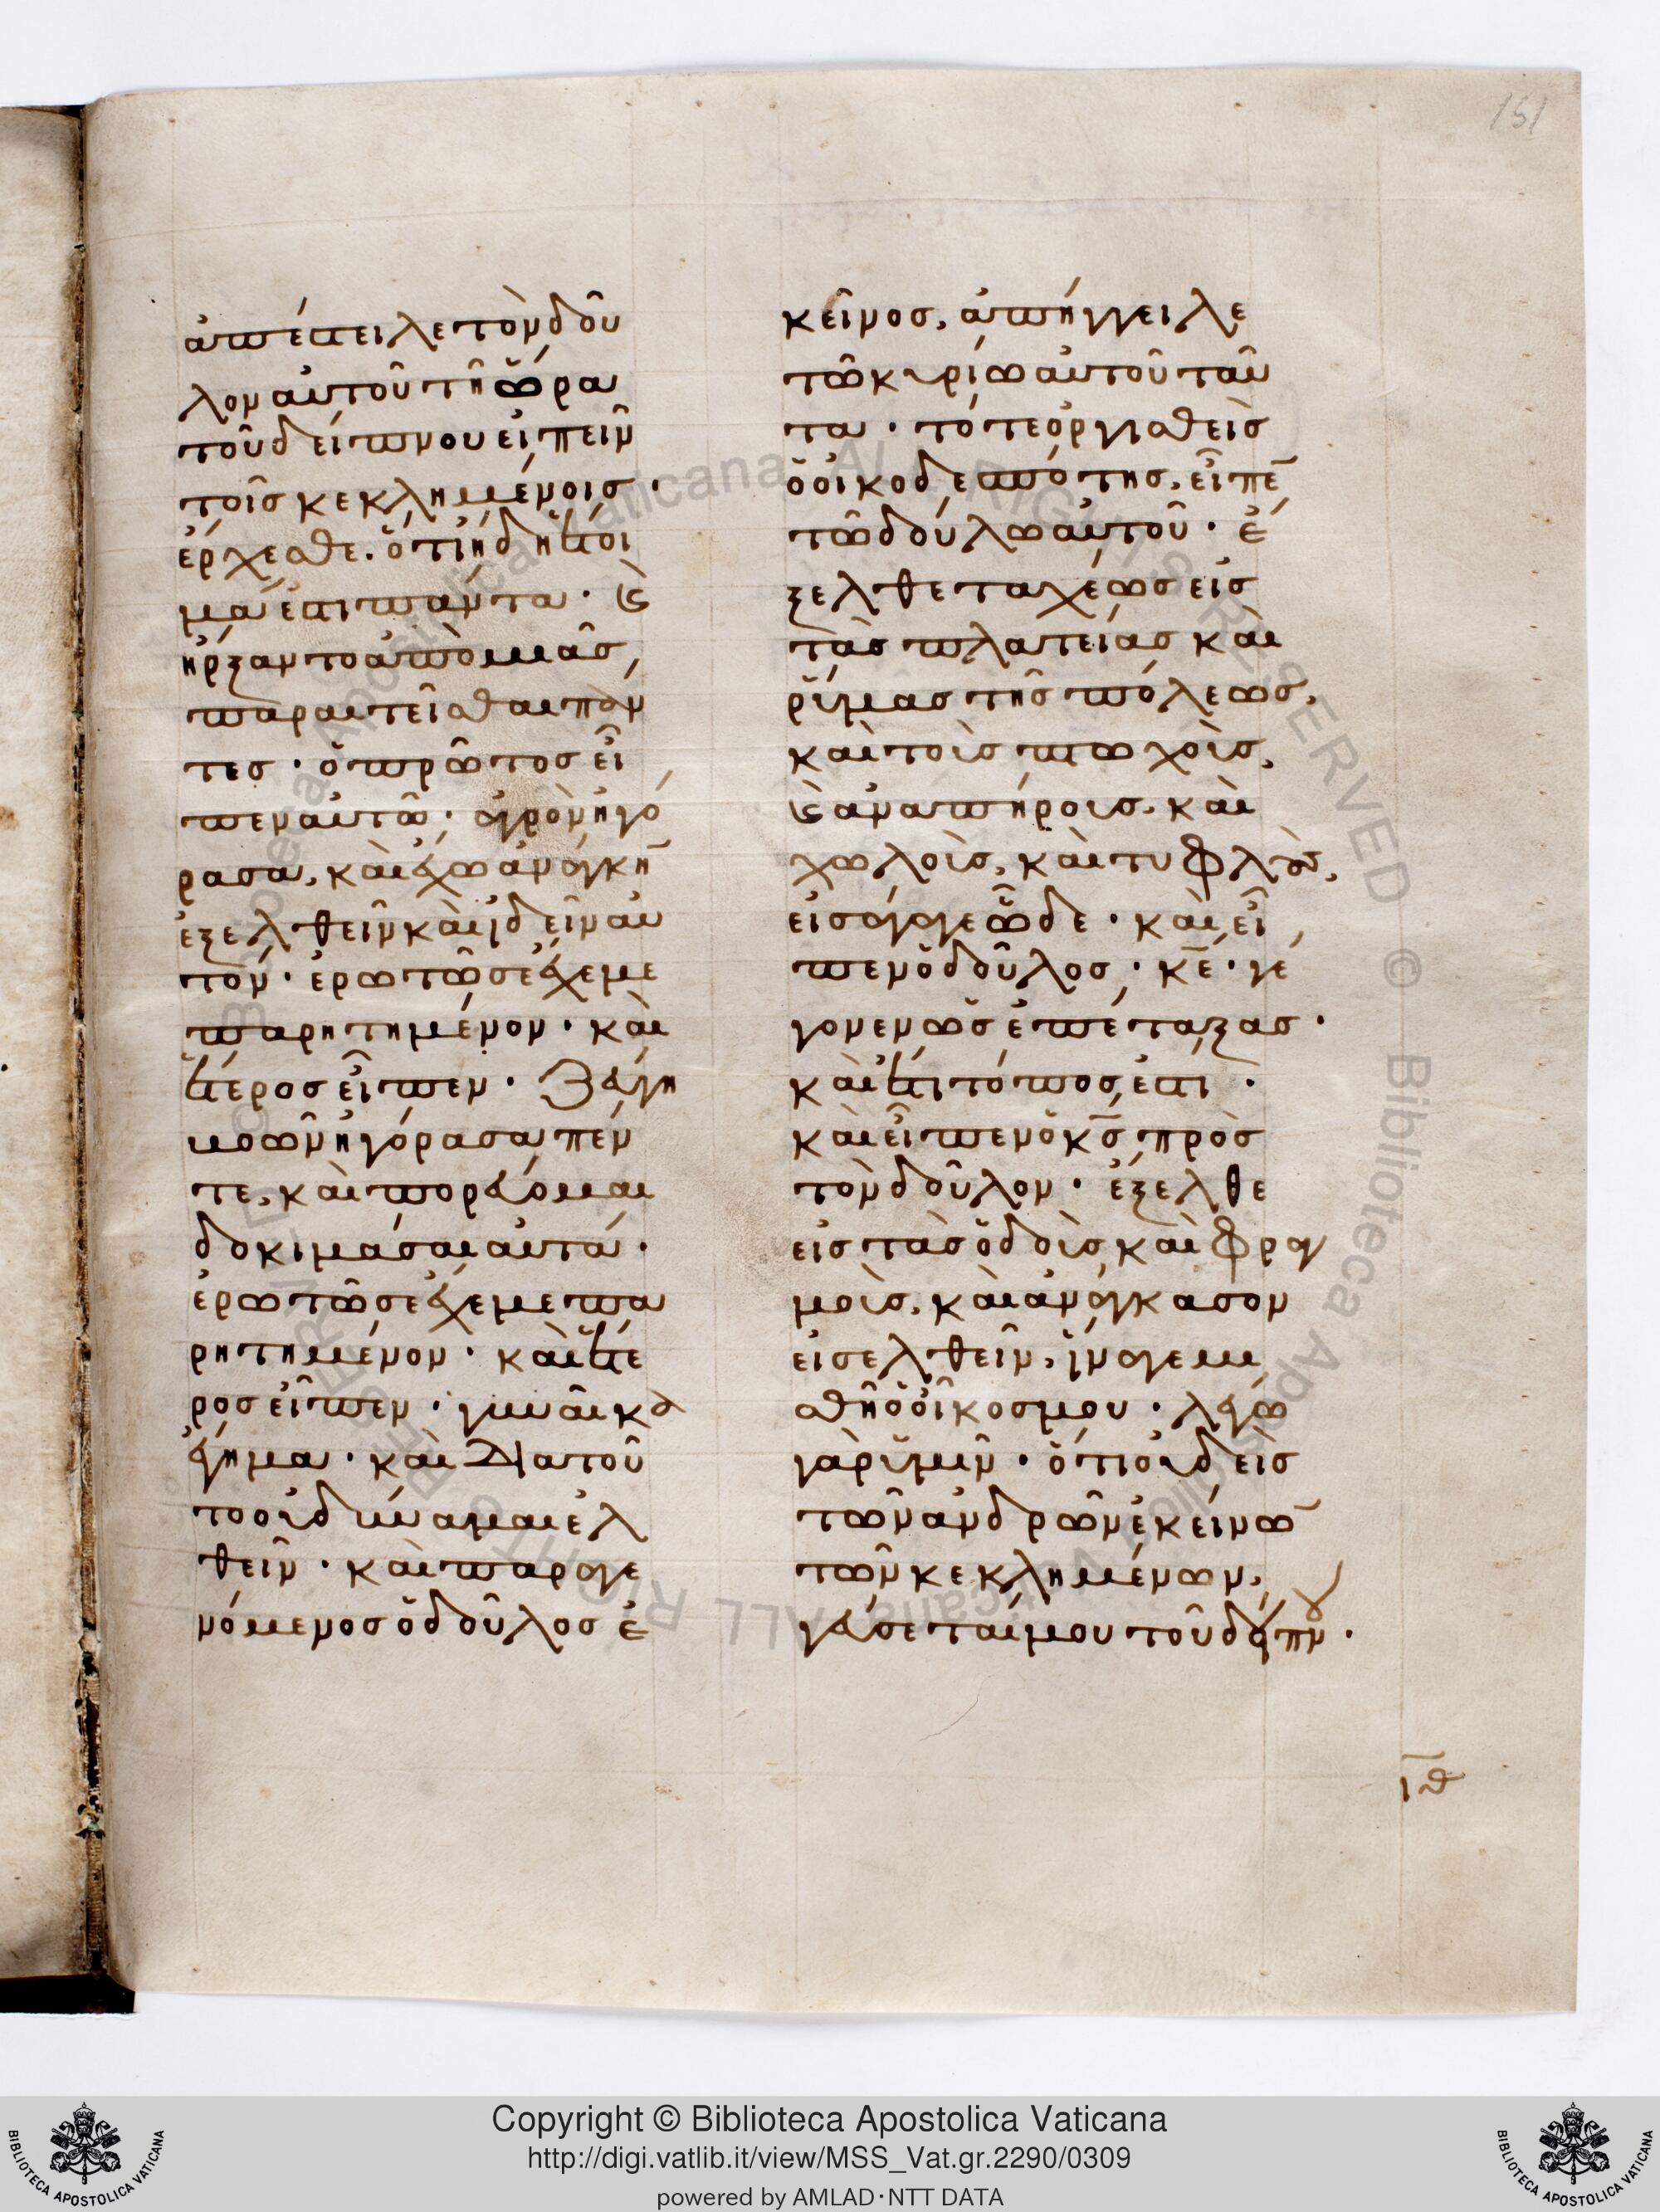 151
ἀπέστειλε τὸν δοῦ
λον αὐτοῦ τῆ ὥρα
τοῦ δείπνου εἰπεῖν
τοῖς κεκλημένοις·
ἔρχεσθε. ὅτι ἤδη ἕτοι
μα ἐστι πάντα· καὶ
ἤρξαντο ἀπὸ μιᾶς,
παραιτεῖσθαι πάν
τες· ὁ πρῶτος εἶ
πεν αὐτῶ· ἀγρὸν ἠγό
ρασα, καὶ ἔχω ἀνάγκη̄
ἐξελθεῖν καὶ ἰδεῖν αὐ
τόν· ἐρωτῶ σε ἔχε με
παρητημένον· καὶ
ἕτερος εἶπεν· ζεύγη
βοῶν ἠγόρασα πέν
τε, καὶ πορεύομαι
δοκιμάσαι αὐτά·
ἐρωτῶ σε ἔχε με πα
ρητημένον· καὶ ἕτε
ρος εἶπεν· γυναῖκα
ἔγημα· καὶ διατοῦ
το οὐ δύναμαι ἐλ
θεῖν· καὶ παραγε
νόμενος ὁ δοῦλος ἐ
κεῖνος, ἀπήγγειλε
τῶ κυρίω αὐτοῦ ταῦ
τα· τότε ὀργισθεὶς
ὁ οἰκοδεσπότης, εἶπε̄
τῶ δούλω αὐτοῦ· ἔ
ξελθε ταχέως εἰς
τὰς πλατείας καὶ
ῥύμας τῆς πόλεως,
καὶ τοὺς πτωχοὺς,
καὶ ἀναπήρους, καὶ
χωλοὺς, καὶ τυφλοὺς,
εἰσάγαγε ὧδε· καὶ εἶ
πεν ὁ δοῦλος· κ̄ε· γέ
γονεν ὡς ἐπέταξας·
καὶ ἔτι τόπος ἐστι·
καὶ εἶπεν ὁ κ̄ς πρὸς
τὸν δοῦλον· ἔξελθε
εἰς τὰς ὁδοὺς καὶ φραγ
μοὺς, καὶ ἀνάγκασον
εἰσελθεῖν, ἵνα γεμι
σθῆ ὁ οἶκος μου· λέγω
γὰρ ὑμῖν· ὅτι οὐδεὶς
τῶν ἀνδρῶν ἐκείνω̄
τῶν κεκλημένων,
γεύσεταί μου τοῦ δείπν·
ῑθ
Copyright © Biblioteca Apostolica Vaticana
http://digi.vatlib.it/view/MSS_Vat.gr.2290/0309
powered by AMLAD·NTT DATA
BIBLIOTECA APOSTOLICA VATICANA
BIBLIOTECA APOSTOLICA VATICANA